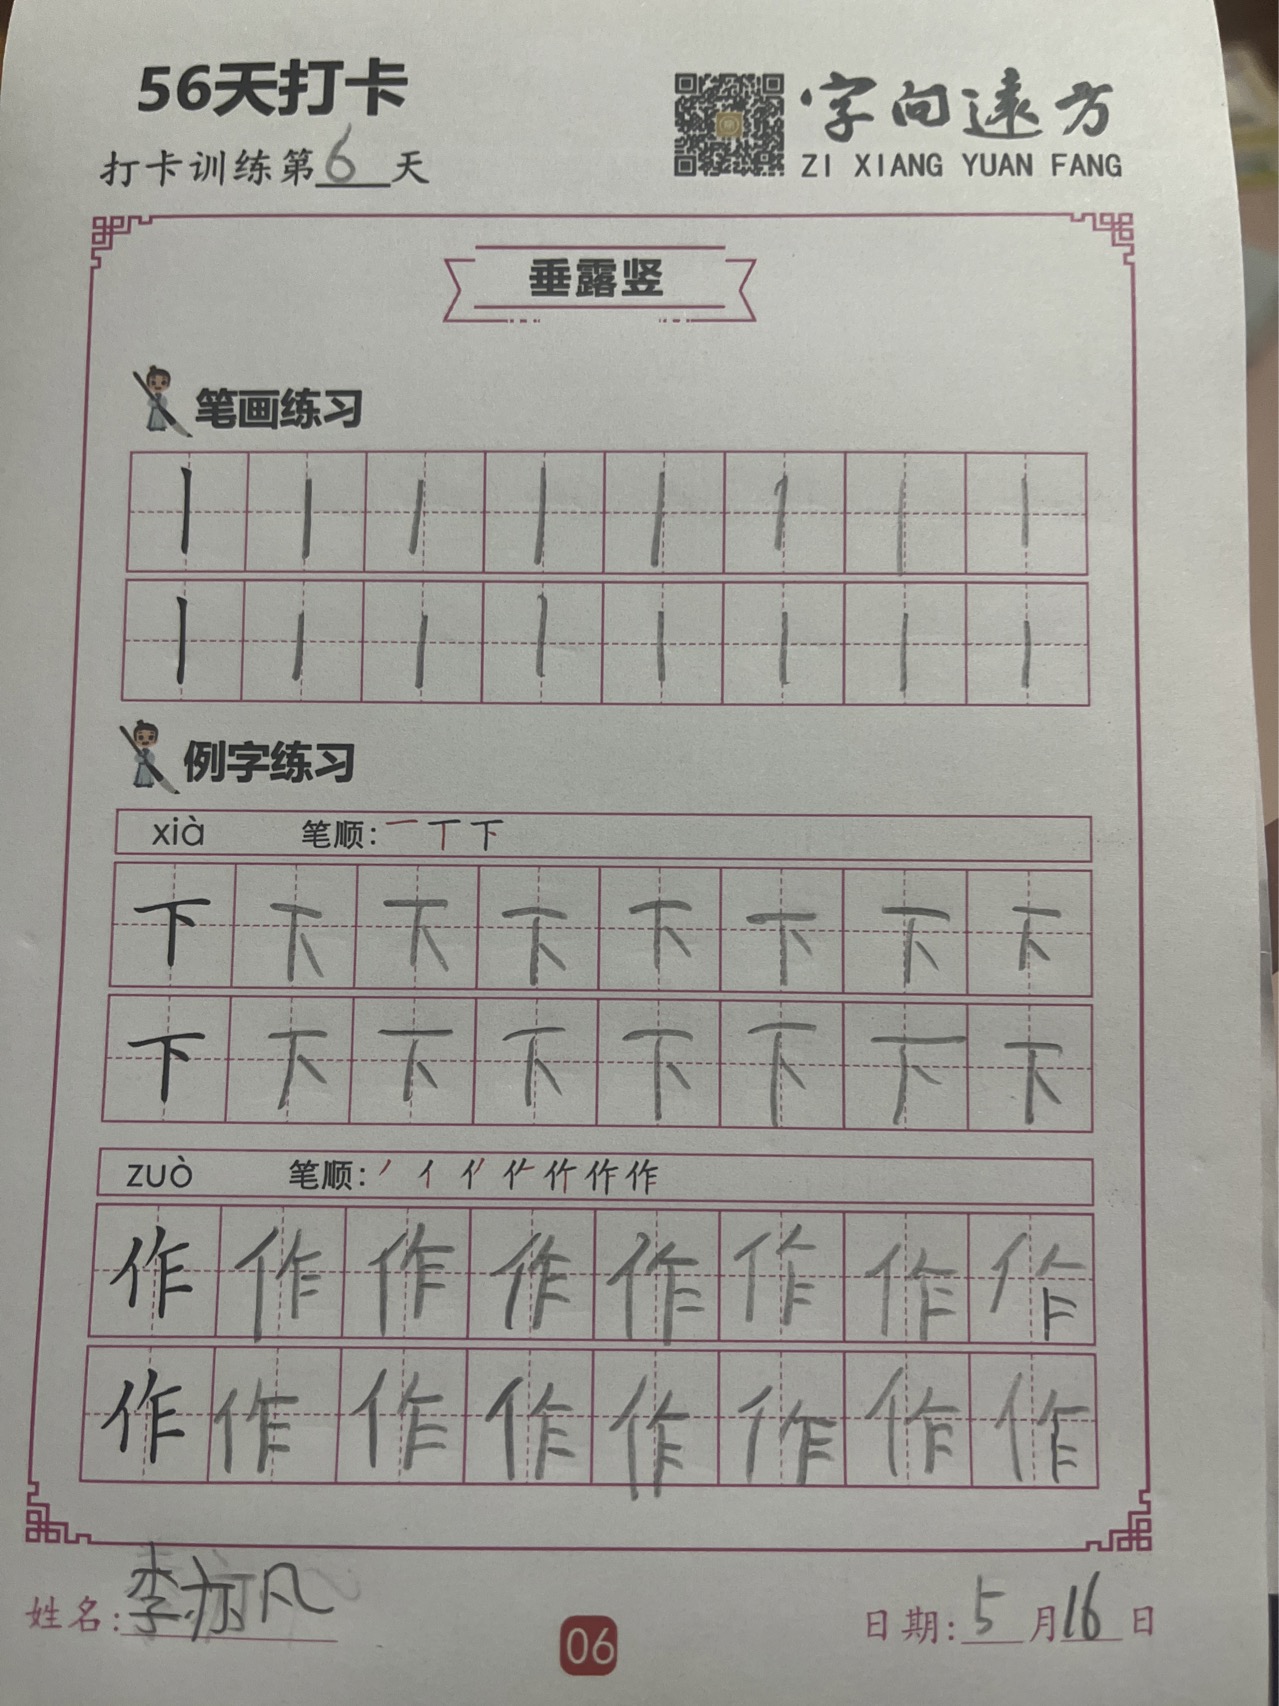 56天打卡
打卡训练第6天
字向远方
ZI XIANG YUAN FANG
垂露竖
笔画练习
丨 丨 丨 丨 丨 丨 丨 丨
丨 丨 丨 丨 丨 丨 丨 丨
例字练习
xià 笔顺: 一 丅 下
下 下 下 下 下 下 下 下
下 下 下 下 下 下 下 下
zuò 笔顺: 丿 亻 作 作
作 作 作 作 作 作 作 作
作 作 作 作 作 作 作 作
姓名: 李亦凡
06
日期: 5月16日